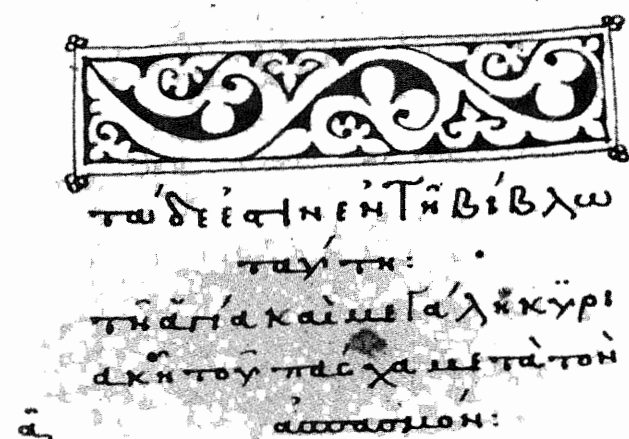 τάδε ἐστὶν ἐν τῇ βίβλω
ταύτη:
τῆ ἁγία καὶ μεγάλη κϋρι
ακῆ τοῦ πάσχα μετὰ τὸν
ἀσπασμόν:
ᾱ